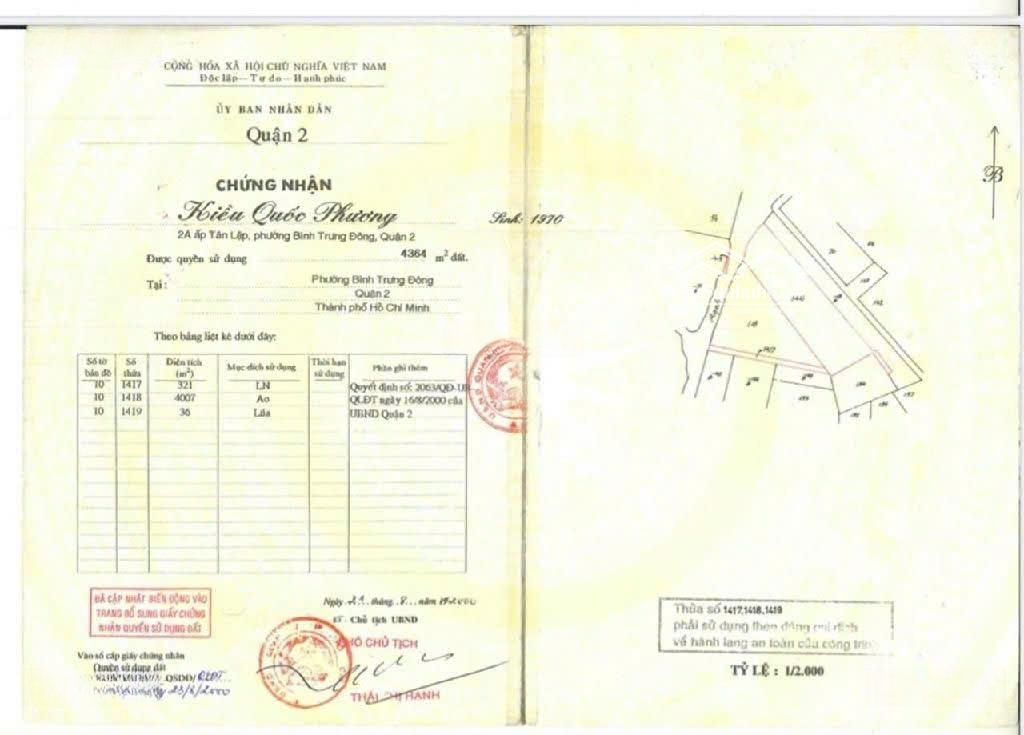 CỘNG HÒA XÃ HỘI CHỦ NGHĨA VIỆT NAM
Độc lập - Tự do - Hạnh phúc
ỦY BAN NHÂN DÂN
Quận 2
CHỨNG NHẬN
Kiều Quốc Phương Sinh: 1970
2A ấp Tân Lập, phường Bình Trưng Đông, Quận 2
Được quyền sử dụng 4364 m² đất.
Tại: Phường Bình Trưng Đông
Quận 2
Thành phố Hồ Chí Minh
Theo bảng liệt kê dưới đây:
Số tờ bản đồ Số thửa Diện tích (m²) Mục đích sử dụng Thời hạn sử dụng Phần ghi thêm
10 1417 321 LN Quyết định số: 2063/QĐ-UB
10 1418 4007 Ao QLĐT ngày 16/8/2000 của
10 1419 36 Lúa UBND Quận 2
ĐÃ CẬP NHẬT BIẾN ĐỘNG VÀO
TRANG BỔ SUNG GIẤY CHỨNG
NHẬN QUYỀN SỬ DỤNG ĐẤT
tháng 8 năm 2000
Chủ tịch UBND
PHÓ CHỦ TỊCH
Vào sổ cấp giấy chứng nhận
Quyền sử dụng đất
QSDĐ/
23/8/2000
B
Thửa số 1417,1418,1419
phải sử dụng theo đúng qui định
về hành lang an toàn của công trình
TỶ LỆ : 1/2.000